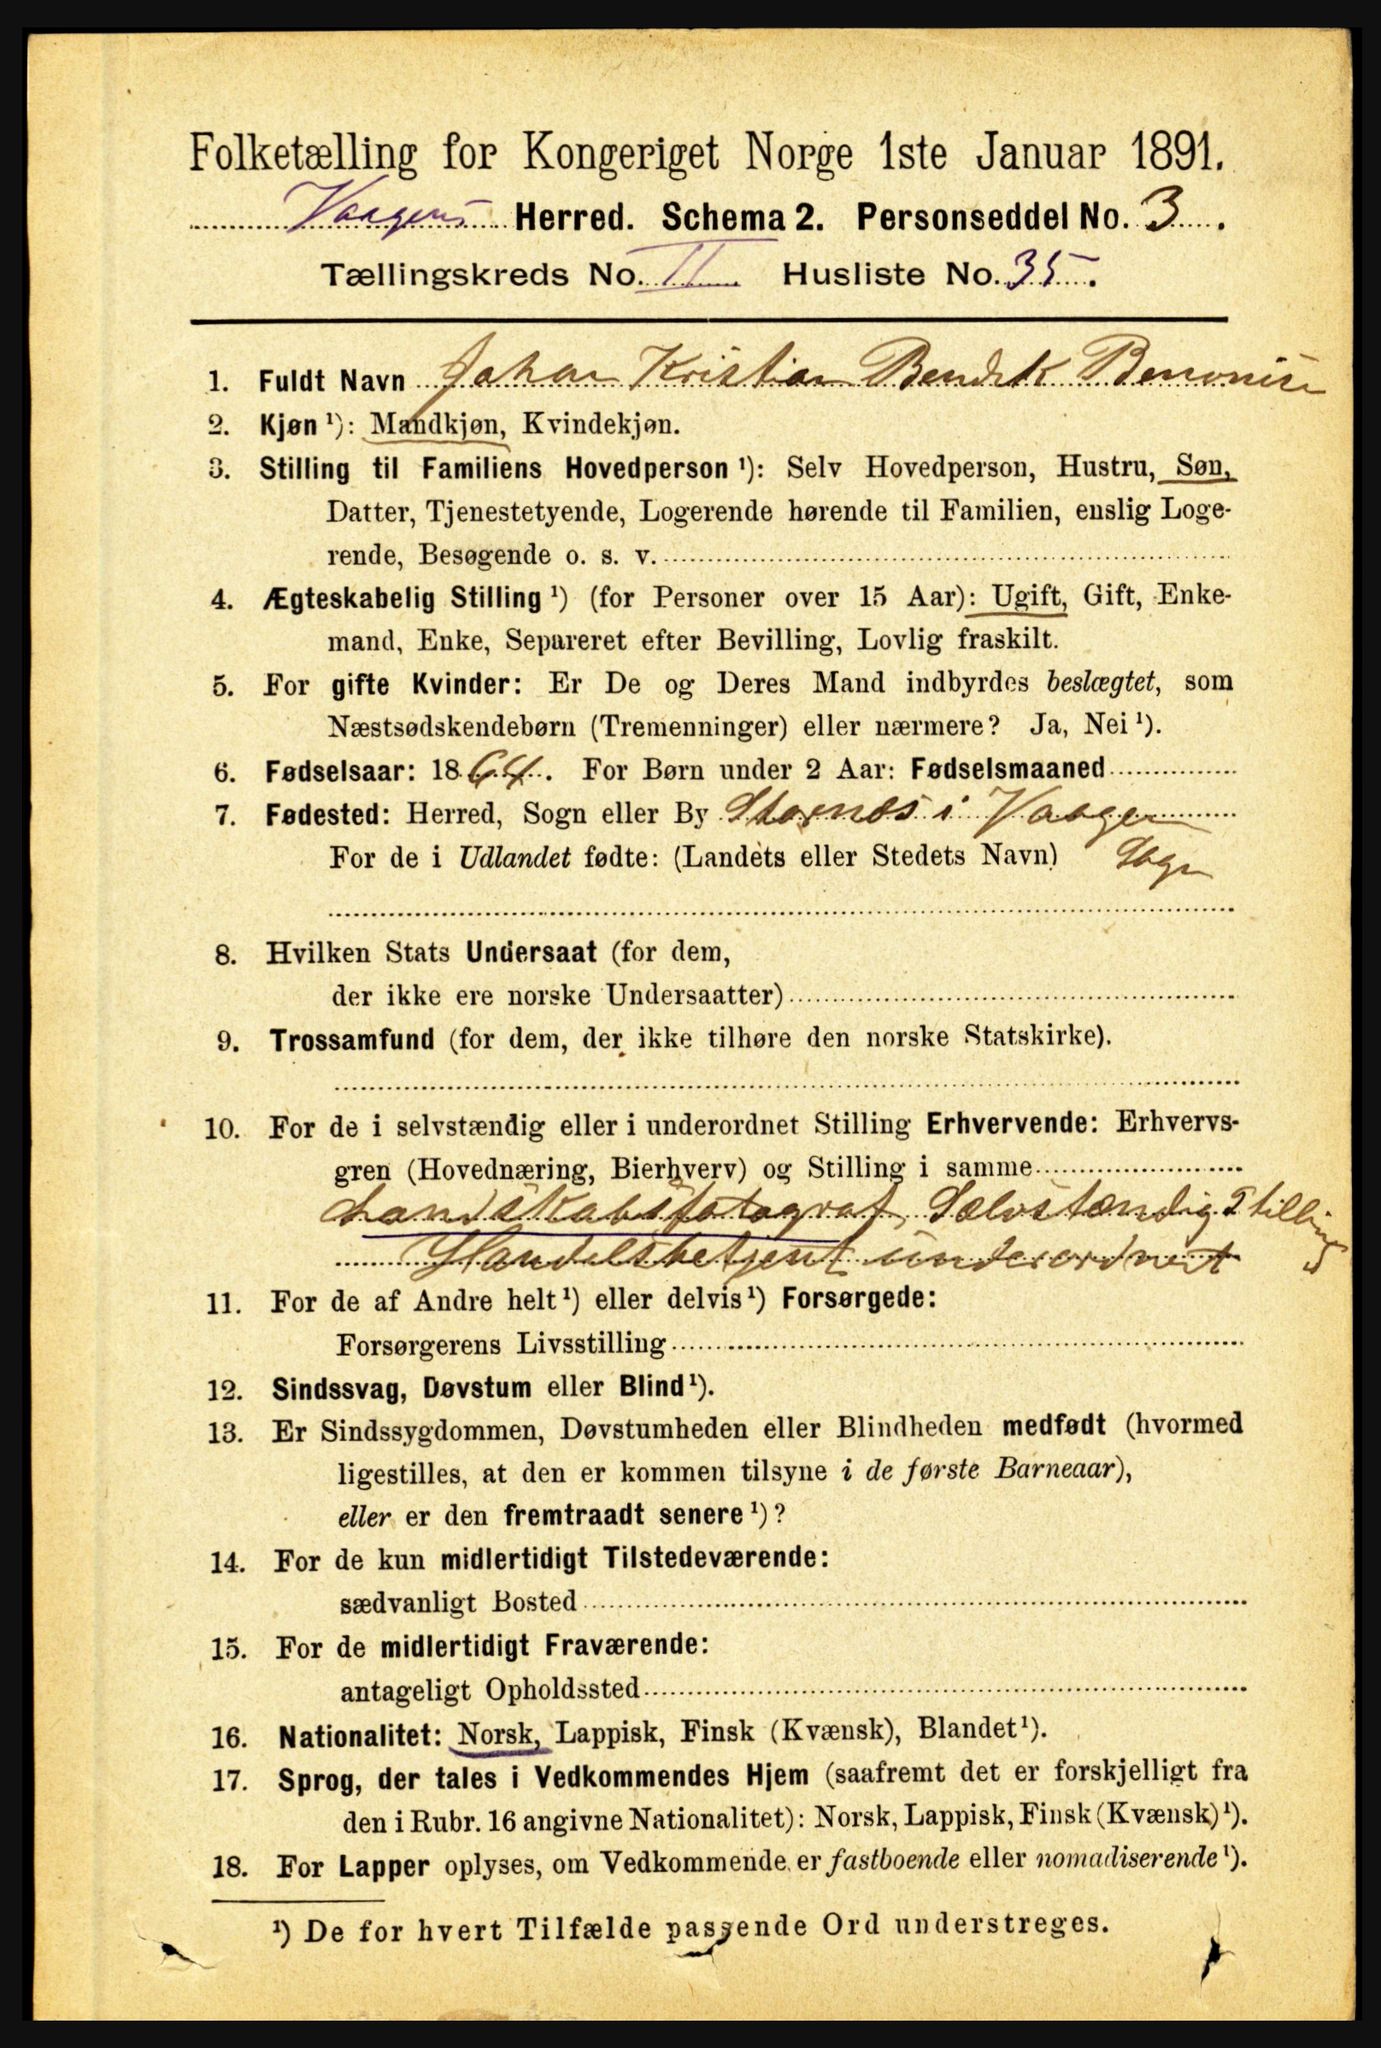 Folketælling for Kongeriget Norge 1ste Januar 1891.
Vaagens Herred. Schema 2. Personseddel No. 3.
Tællingskreds No. II Husliste No. 35.
1. Fuldt Navn Johan Kristian Bendik Benonise
2. Kjøn ¹): Mandkjøn, Kvindekjøn.
3. Stilling til Familiens Hovedperson ¹): Selv Hovedperson, Hustru, Søn,
Datter, Tjenestetyende, Logerende hørende til Familien, enslig Loge-
rende, Besøgende o. s. v.
4. Ægteskabelig Stilling ¹) (for Personer over 15 Aar): Ugift, Gift, Enke-
mand, Enke, Separeret efter Bevilling, Lovlig fraskilt.
5. For gifte Kvinder: Er De og Deres Mand indbyrdes beslægtet, som
Næstsødskendebørn (Tremenninger) eller nærmere? Ja, Nei ¹).
6. Fødselsaar: 1864. For Børn under 2 Aar: Fødselsmaaned
7. Fødested: Herred, Sogn eller By Stornæs i Vaagen
For de i Udlandet fødte: (Landets eller Stedets Navn) Sogn
8. Hvilken Stats Undersaat (for dem,
der ikke ere norske Undersaatter)
9. Trossamfund (for dem, der ikke tilhøre den norske Statskirke).
10. For de i selvstændig eller i underordnet Stilling Erhvervende: Erhvervs-
gren (Hovednæring, Bierhverv) og Stilling i samme
Landskabsfotograf, Sælvstændig Stilling
Handelsbetjent underordnet
11. For de af Andre helt ¹) eller delvis ¹) Forsørgede:
Forsørgerens Livsstilling
12. Sindssvag, Døvstum eller Blind ¹).
13. Er Sindssygdommen, Døvstumheden eller Blindheden medfødt (hvormed
ligestilles, at den er kommen tilsyne i de første Barneaar),
eller er den fremtraadt senere ¹)?
14. For de kun midlertidigt Tilstedeværende:
sædvanligt Bosted
15. For de midlertidigt Fraværende:
antageligt Opholdssted
16. Nationalitet: Norsk, Lappisk, Finsk (Kvænsk), Blandet ¹).
17. Sprog, der tales i Vedkommendes Hjem (saafremt det er forskjelligt fra
den i Rubr. 16 angivne Nationalitet): Norsk, Lappisk, Finsk (Kvænsk) ¹).
18. For Lapper oplyses, om Vedkommende er fastboende eller nomadiserende ¹).
¹) De for hvert Tilfælde passende Ord understreges.